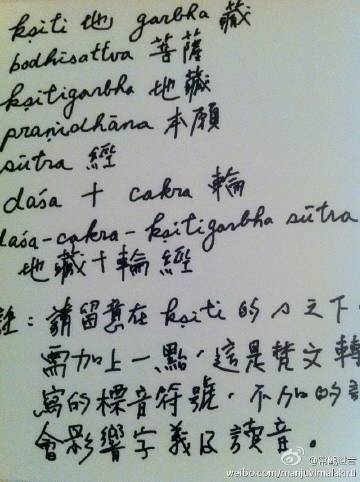 kṣiti 地 garbha 藏
bodhisattva 菩薩
kṣitigarbha 地藏
praṇidhāna 本願
sūtra 經
daśa 十 cakra 輪
daśa-cakra-kṣitigarbha sūtra
地藏十輪經
註：請留意在 kṣiti 的 s 之下
需加上一點，這是梵文轉
寫的標音符號，不加的話
會影響字義及讀音。
weibo.com/manjuvimalakirti